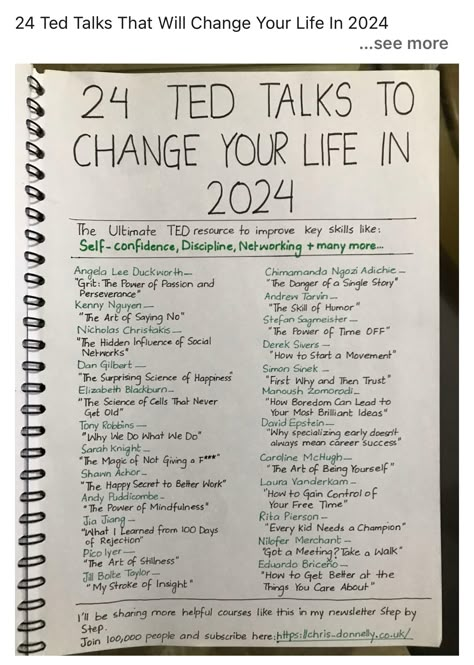 24 Ted Talks That Will Change Your Life In 2024
...see more
24 TED TALKS TO
CHANGE YOUR LIFE IN
2024
The Ultimate TED resource to improve key skills like:
Self-confidence, Discipline, Networking + many more...
Angela Lee Duckworth—
"Grit: The Power of Passion and
Perseverance"
Kenny Nguyen—
"The Art of Saying No"
Nicholas Christakis—
"The Hidden Influence of Social
Networks"
Dan Gilbert—
"The Surprising Science of Happiness"
Elizabeth Blackburn—
"The Science of Cells That Never
Get Old"
Tony Robbins—
"Why We Do What We Do"
Sarah Knight—
"The Magic of Not Giving a F***"
Shawn Achor—
"The Happy Secret to Better Work"
Andy Puddicombe—
"The Power of Mindfulness"
Jia Jiang—
"What I Learned from 100 Days
of Rejection"
Pico Iyer—
"The Art of Stillness"
Jill Bolte Taylor—
"My Stroke of Insight"
Chimamanda Ngozi Adichie—
"The Danger of a Single Story"
Andrew Tarvin—
"The Skill of Humor"
Stefan Sagmeister—
"The Power of Time OFF"
Derek Sivers—
"How to Start a Movement"
Simon Sinek—
"First Why and Then Trust"
Manoush Zomorodi—
"How Boredom Can Lead to
Your Most Brilliant Ideas"
David Epstein—
"Why specializing early doesn't
always mean career success"
Caroline McHugh—
"The Art of Being Yourself"
Laura Vanderkam—
"How to Gain Control of
Your Free Time"
Rita Pierson—
"Every Kid Needs a Champion"
Nilofer Merchant—
"Got a Meeting? Take a Walk"
Eduardo Briceño—
"How to Get Better at the
Things You Care About"
I'll be sharing more helpful courses like this in my newsletter Step by
Step.
Join 100,000 people and subscribe here:https://chris-donnelly.co.uk/